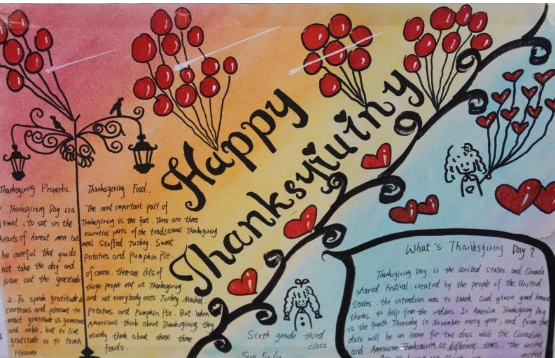 Happy
Thanksgiving
Thanksgiving Proverbs.
Thanksgiving Day is a
to sit in the
hearts of honest men but
be careful that you do
not take the day and
leave out the gratitude
To speak gratitude
courteous and pleasant to
enact gratitude is generous
and noble, but to live
gratitude is to touch
Heaven
Thanksgiving Food.
The most important part of
Thanksgiving is the food. There are three
essential parts of the traditional Thanksgiving
meal Stuffed Turkey. Sweet
Potatoes and Pumpkin Pie.
of course, there are lots of
things people eat at Thanksgiving
and not everybody eats Turkey Mashed
Potatoes and Pumpkin Pie. But when
Americans think about Thanksgiving they
usually think about these three
foods
Sixth grade third
class
What's Thanksgiving Day?
Thanksgiving Day is the United States and Canada
shared festival, created by the people of the United
States. the intention was to thank God given good harvest
thanks to help from the indians. In America Thanksgiving Day
is the fourth Thursday in November every year, and from the
date will be on leave for two days while the Canadian
and American Thanksgiving at different times. the second